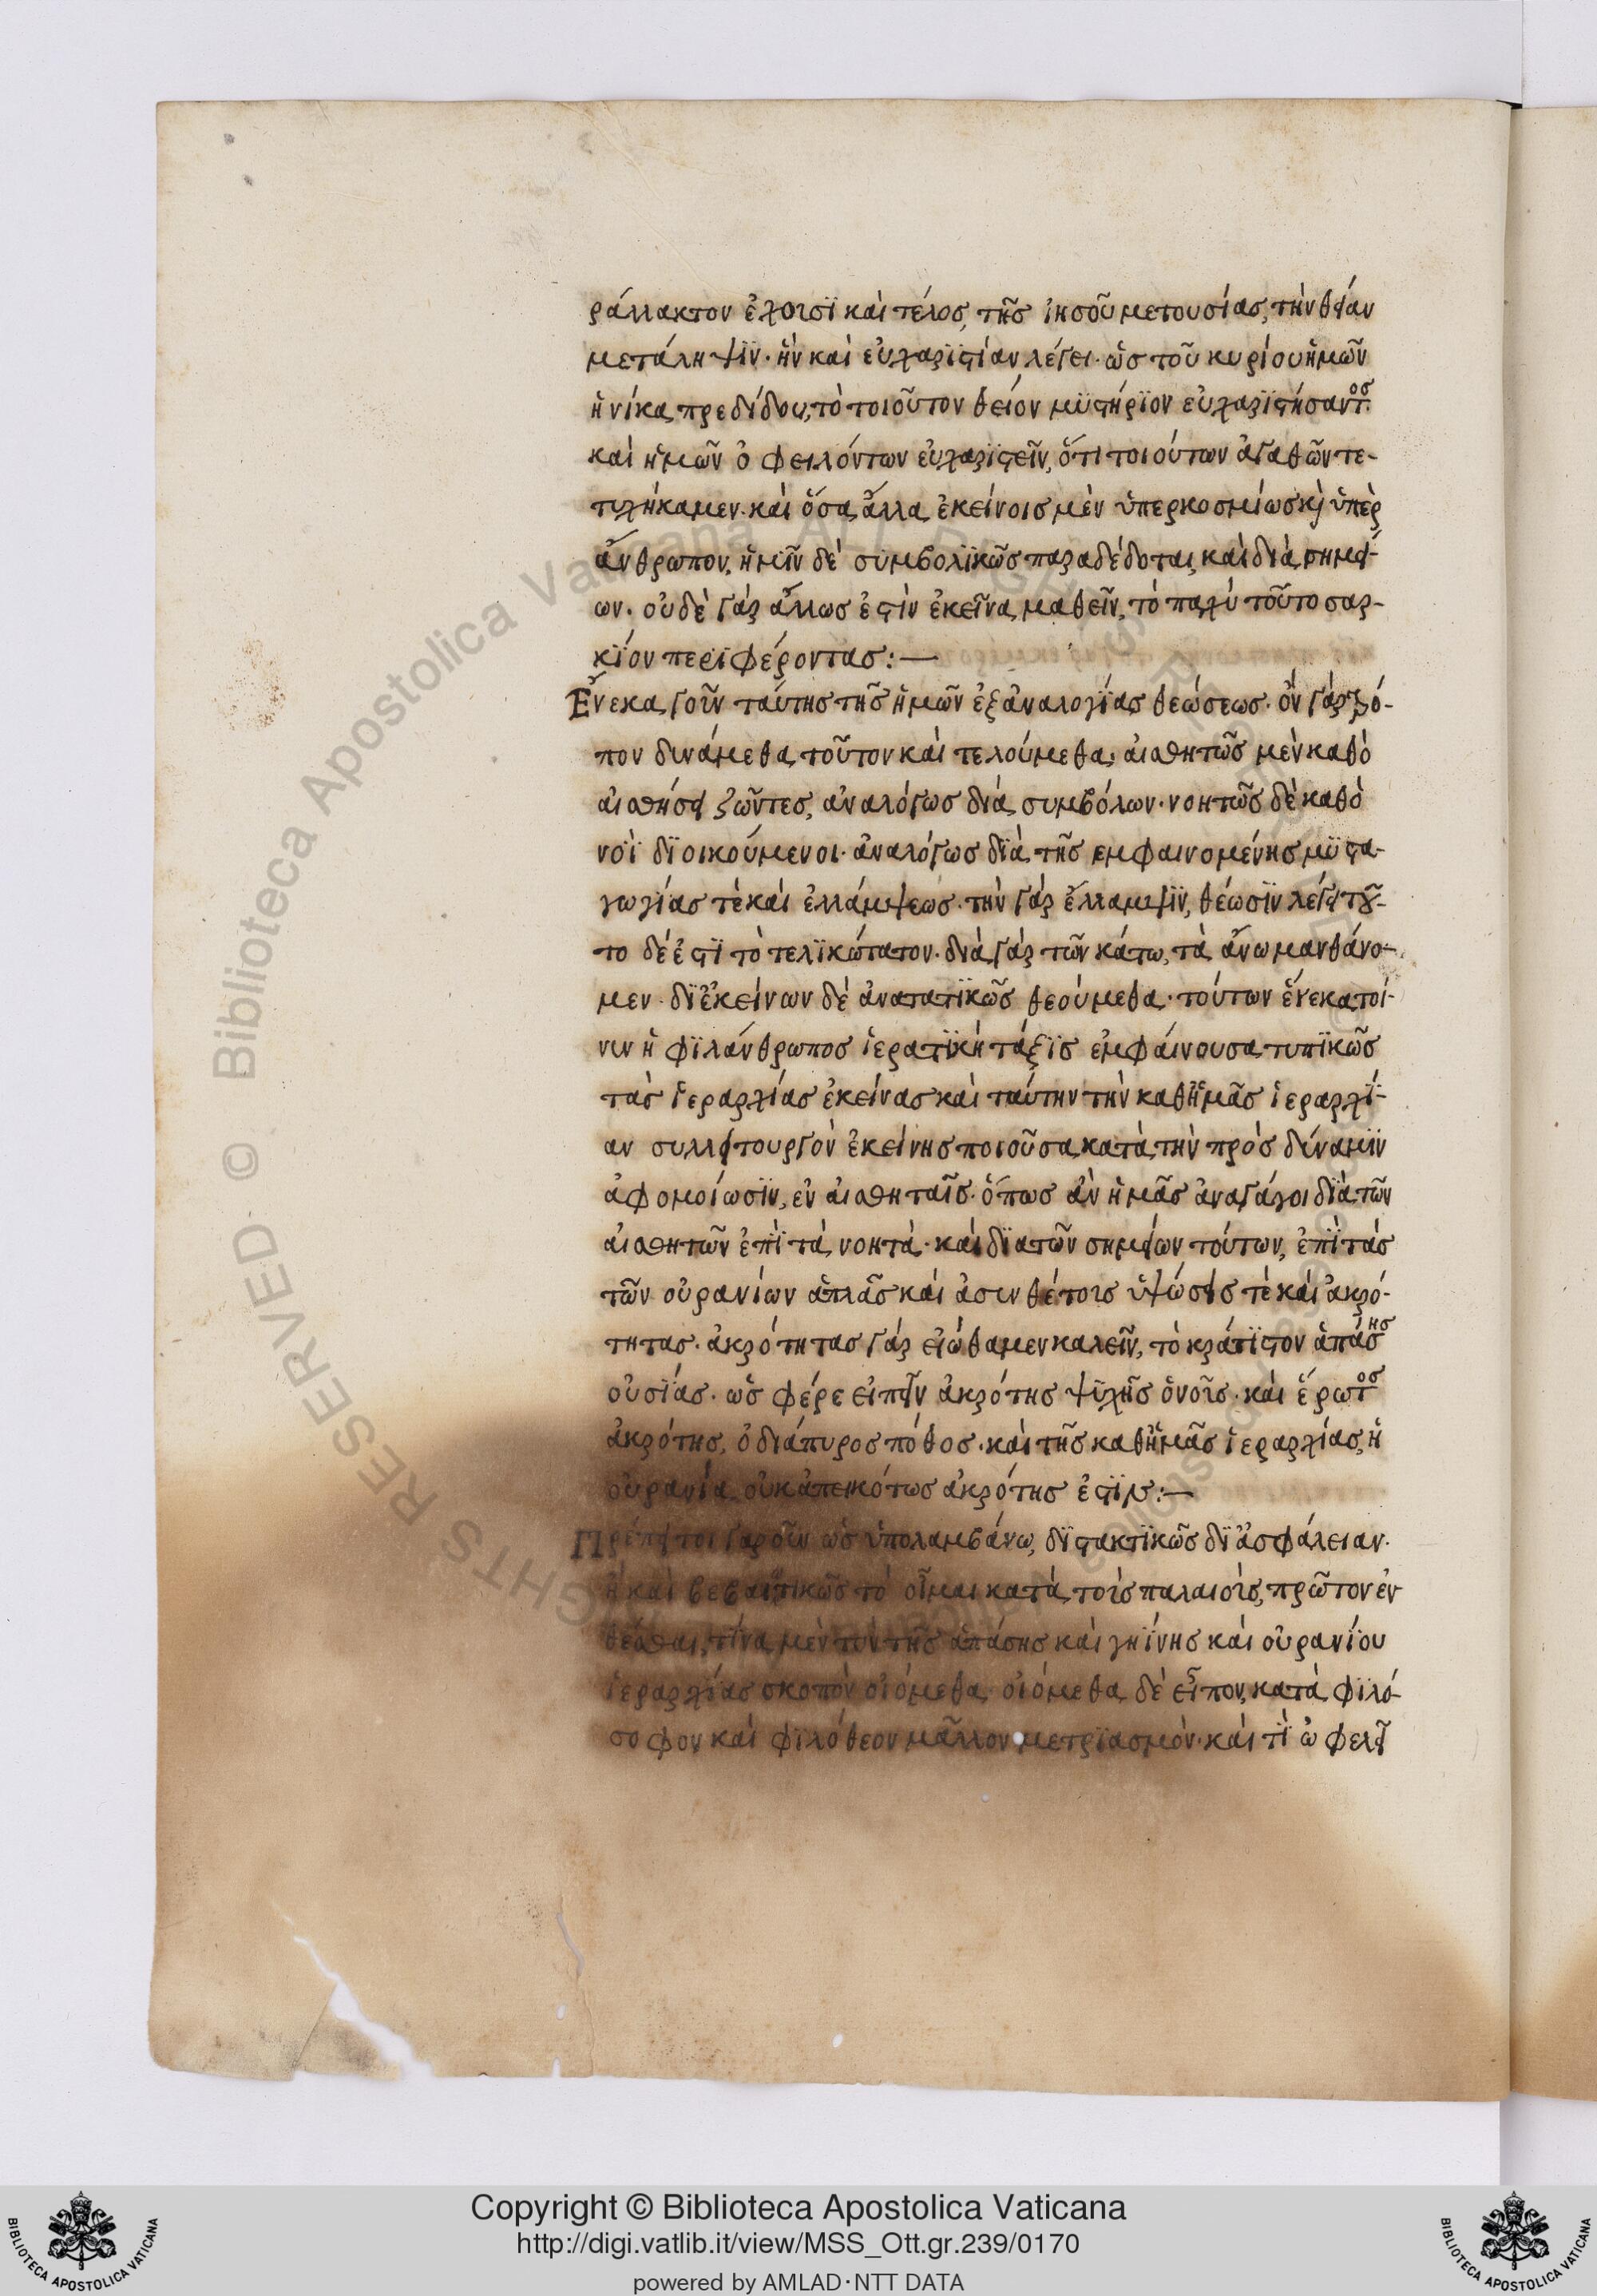 ράλλακτον ἔχουσϊ καὶ τέλος, τῆς ἰησοῦ μετουσίας, τὴν θείαν
μετάληψϊν· ἣν καὶ εὐχαρϊστίαν λέγει· ὡς τοῦ κυρίου ἡμῶν
ἡνίκα πρεδίδου, τὸ τοιοῦτον θεῖον μϋστήρϊον εὐχαρϊστήσαντος·
καὶ ἡμῶν ὀφειλόντων εὐχαρϊστεῖν, ὅτι τοιούτων ἀγαθῶν τε-
τυχήκαμεν· καὶ ὅσα ἄλλα ἐκείνοις μὲν ὑπερκοσμίως κ(αὶ) ὑπὲρ
ἄνθρωπον, ἡμῖν δὲ συμβολϊκῶς παραδέδοται, καὶ διὰ σημεί-
ων· οὐδὲ γὰρ ἄλλως ἐστὶν ἐκεῖνα μαθεῖν, τὸ παχὺ τοῦτο σαρ-
κϊον περϊφέροντας:—
Ἕνεκα γοῦν ταύτης τῆς ἡμῶν ἐξ ἀναλογίας θεώσεως· ὃν γὰρ τρό-
πον δυνάμεθα τοῦτον καὶ τελούμεθα, αἰσθητῶς μὲν καθὸ
αἰσθήσει ζῶντες, ἀναλόγως διὰ συμβόλων· νοητῶς δὲ καθὸ
νοῒ δϊοικούμενοι· ἀναλόγως δϊὰ τῆς ἐμφαινομένης μϋστα-
γωγίας τὲ καὶ ἐλλάμψεως· τὴν γὰρ ἔλλαμψϊν, θέωσϊν λέγει τοῦ-
το δέ ἐστϊ τὸ τελϊκώτατον· διὰ γὰρ τῶν κάτω, τὰ ἄνω μανθάνο-
μεν· δϊ ἐκείνων δὲ ἀνατατϊκῶς θεούμεθα· τούτων ἕνεκα τοί-
νυν ἡ φϊλάνθρωπος ἱερατϊκὴ τάξϊς ἐμφαίνουσα τυπϊκῶς
τὰς ἱεραρχίας ἐκείνας καὶ ταύτην τὴν καθ ἡμᾶς ἱεραρχί-
αν συλλειτουργὸν ἐκείνης ποιοῦσα κατὰ τὴν πρὸς δύναμϊν
ἀφομοίωσϊν, ἐν αἰσθηταῖς· ὅπως ἂν ἡμᾶς ἀναγάγοι δϊὰ τῶν
αἰσθητῶν ἐπῒ τὰ νοητὰ· καὶ δϊα τῶν σημείων τούτων, ἐπῒ τὰς
τῶν οὐρανίων ἁπλᾶς καὶ ἀσυνθέτους ὑψώσεις τὲ καὶ ἀκρό-
τητας· ἀκρότητας γὰρ εἰώθαμεν καλεῖν, τὸ κράτϊστον ἁπάσης
οὐσϊας· ὡς φέρε εἰπεῖν ἀκρότης ψϋχῆς ὁ νοῦς· καὶ ἔρωτος
ἀκρότης, ὁ διάπυρος πόθος· καὶ τῆς καθ ἡμᾶς ἱεραρχίας, ἡ
οὐρανία οὐκ ἀπεικότως ἀκρότης ἐστϊν:—
Πρέπει τοιγαροῦν ὡς ὑπολαμβάνω, δϊστακτϊκῶς δϊ ἀσφάλειαν·
ἢ καὶ βεβαιωτικῶς τὸ οἶμαι κατὰ τοὺς παλαιοὺς, πρῶτον ἐκ
θέσθαι, τίνα μὲν τὸν τῆς ἁπάσης καὶ γηΐνης καὶ οὐρανίου
ἱεραρχίας σκοπὸν οἰόμεθα· οἰόμεθα δὲ εἶπον, κατὰ φϊλό-
σοφον καὶ φϊλόθεον μᾶλλον μετρϊασμὸν· καὶ τῒ ὠφελεῖ
Copyright © Biblioteca Apostolica Vaticana
http://digi.vatlib.it/view/MSS_Ott.gr.239/0170
powered by AMLAD·NTT DATA
BIBLIOTECA APOSTOLICA VATICANA
BIBLIOTECA APOSTOLICA VATICANA